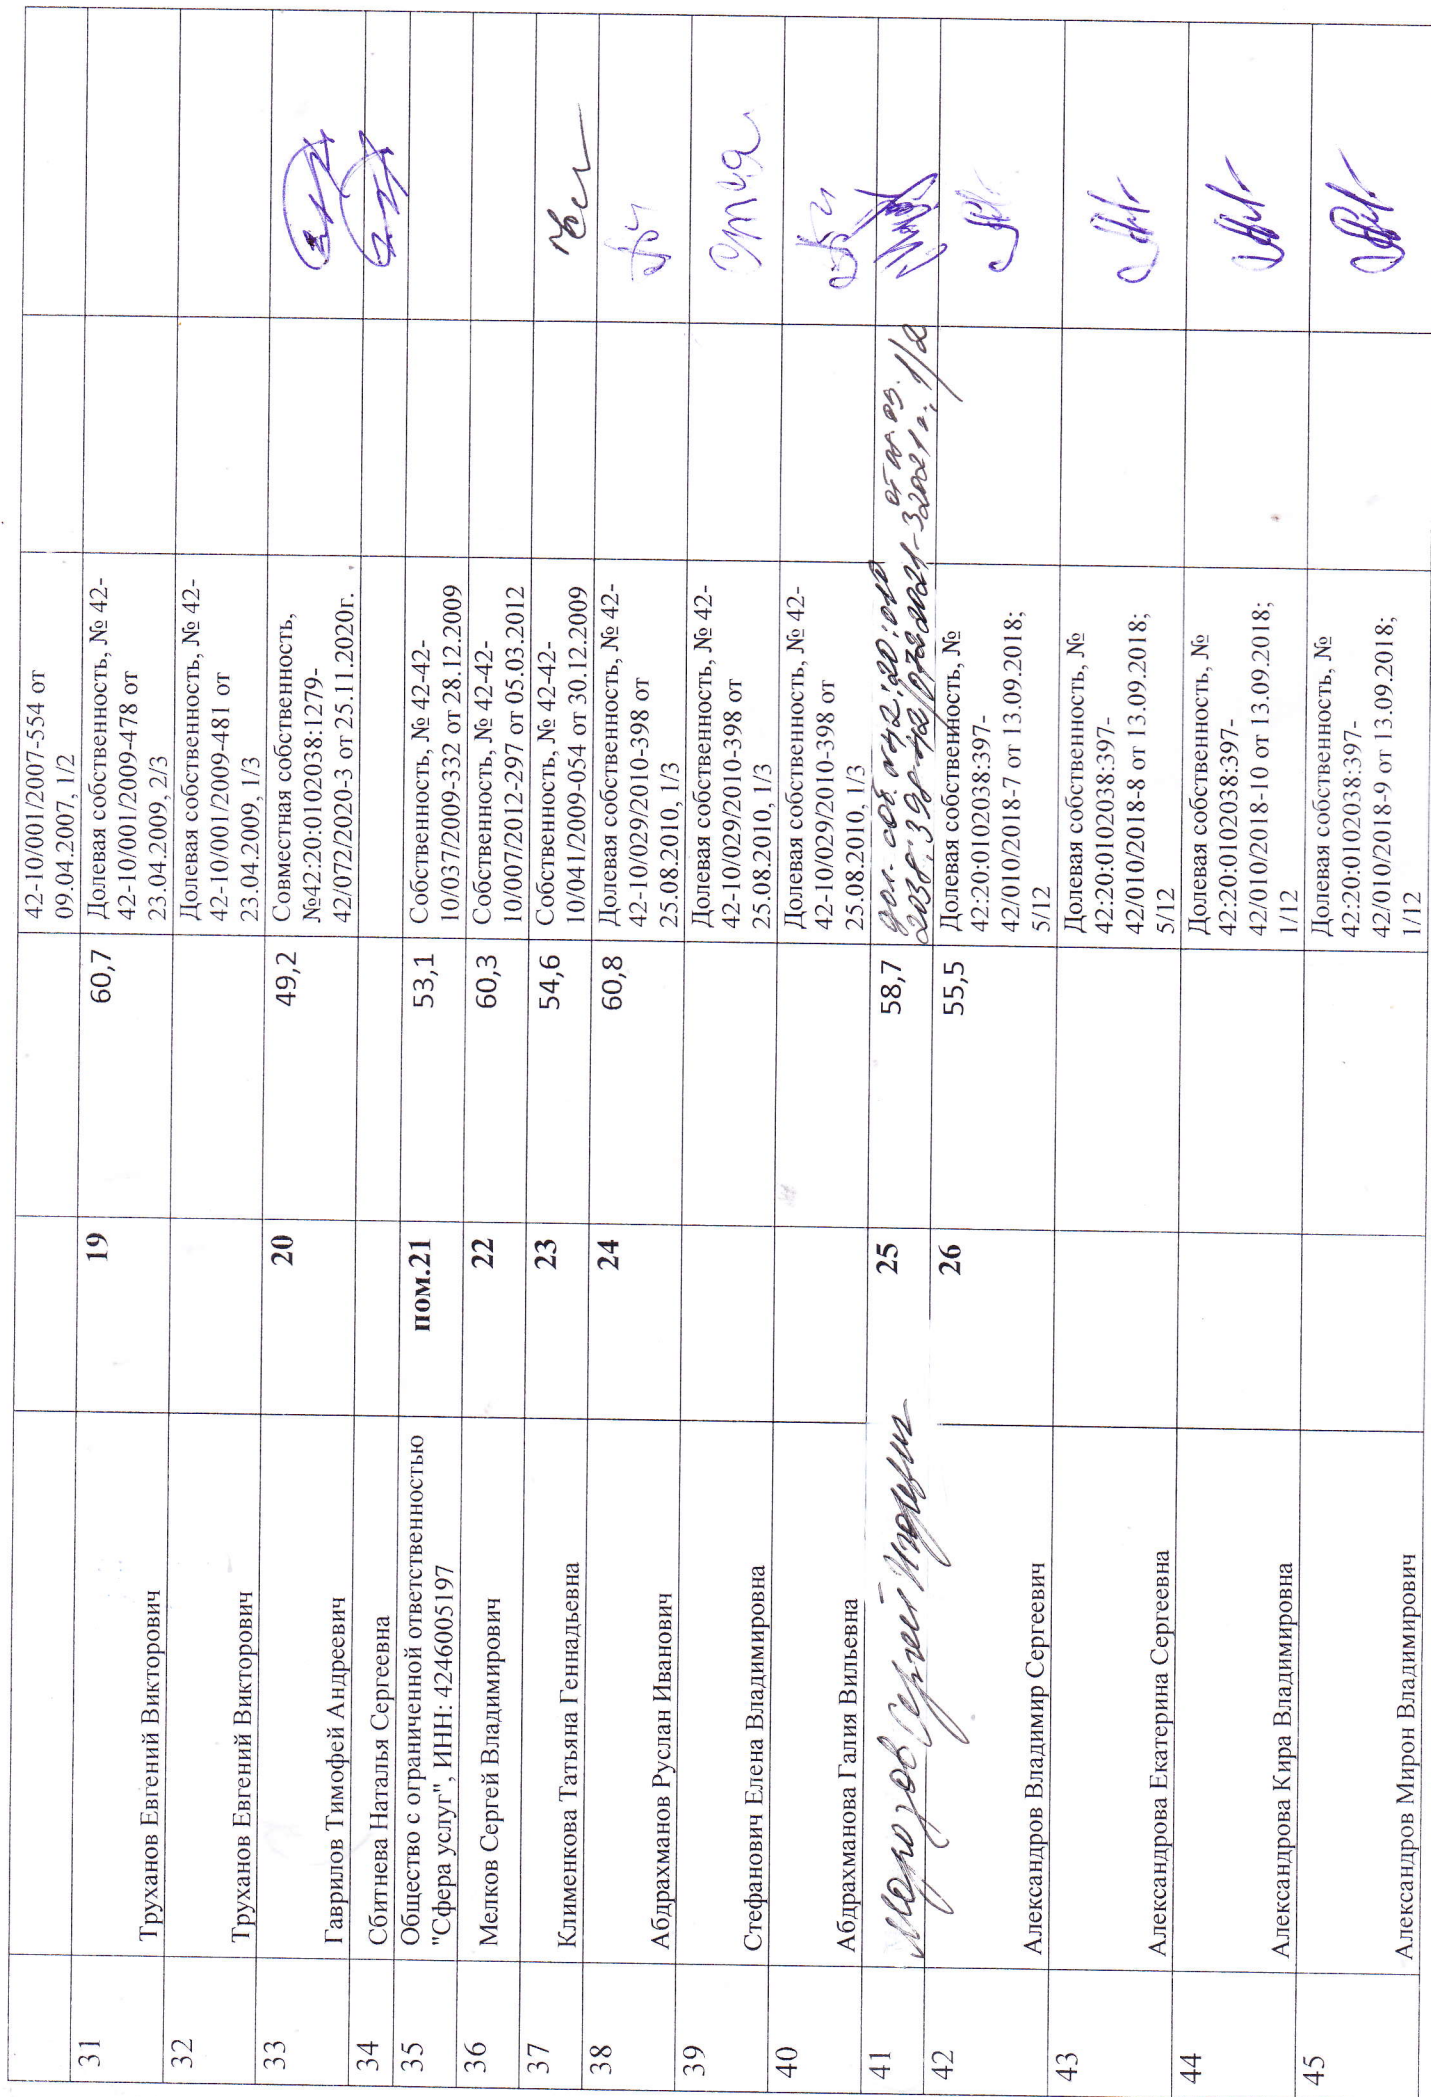 42-10/001/2007-554 от
09.04.2007, 1/2
31
Труханов Евгений Викторович
19
60,7
Долевая собственность, № 42-
42-10/001/2009-478 от
23.04.2009, 2/3
32
Труханов Евгений Викторович
Долевая собственность, № 42-
42-10/001/2009-481 от
23.04.2009, 1/3
33
Гаврилов Тимофей Андреевич
20
49,2
Совместная собственность,
№42:20:0102038:1279-
42/072/2020-3 от 25.11.2020г.
34
Сбитнева Наталья Сергеевна
35
Общество с ограниченной ответственностью
"Сфера услуг", ИНН: 4246005197
пом.21
53,1
Собственность, № 42-42-
10/037/2009-332 от 28.12.2009
36
Мелков Сергей Владимирович
22
60,3
Собственность, № 42-42-
10/007/2012-297 от 05.03.2012
37
Клименкова Татьяна Геннадьевна
23
54,6
Собственность, № 42-42-
10/041/2009-054 от 30.12.2009
38
Абдрахманов Руслан Иванович
24
60,8
Долевая собственность, № 42-
42-10/029/2010-398 от
25.08.2010, 1/3
39
Стефанович Елена Владимировна
Долевая собственность, № 42-
42-10/029/2010-398 от
25.08.2010, 1/3
40
Абдрахманова Галия Вильевна
Долевая собственность, № 42-
42-10/029/2010-398 от
25.08.2010, 1/3
41
Морозов Сергей Игоревич
25
58,7
дол. соб.
1/2
42
Александров Владимир Сергеевич
26
55,5
Долевая собственность, №
42:20:0102038:397-
42/010/2018-7 от 13.09.2018;
5/12
43
Александрова Екатерина Сергеевна
Долевая собственность, №
42:20:0102038:397-
42/010/2018-8 от 13.09.2018;
5/12
44
Александрова Кира Владимировна
Долевая собственность, №
42:20:0102038:397-
42/010/2018-10 от 13.09.2018;
1/12
45
Александров Мирон Владимирович
Долевая собственность, №
42:20:0102038:397-
42/010/2018-9 от 13.09.2018;
1/12